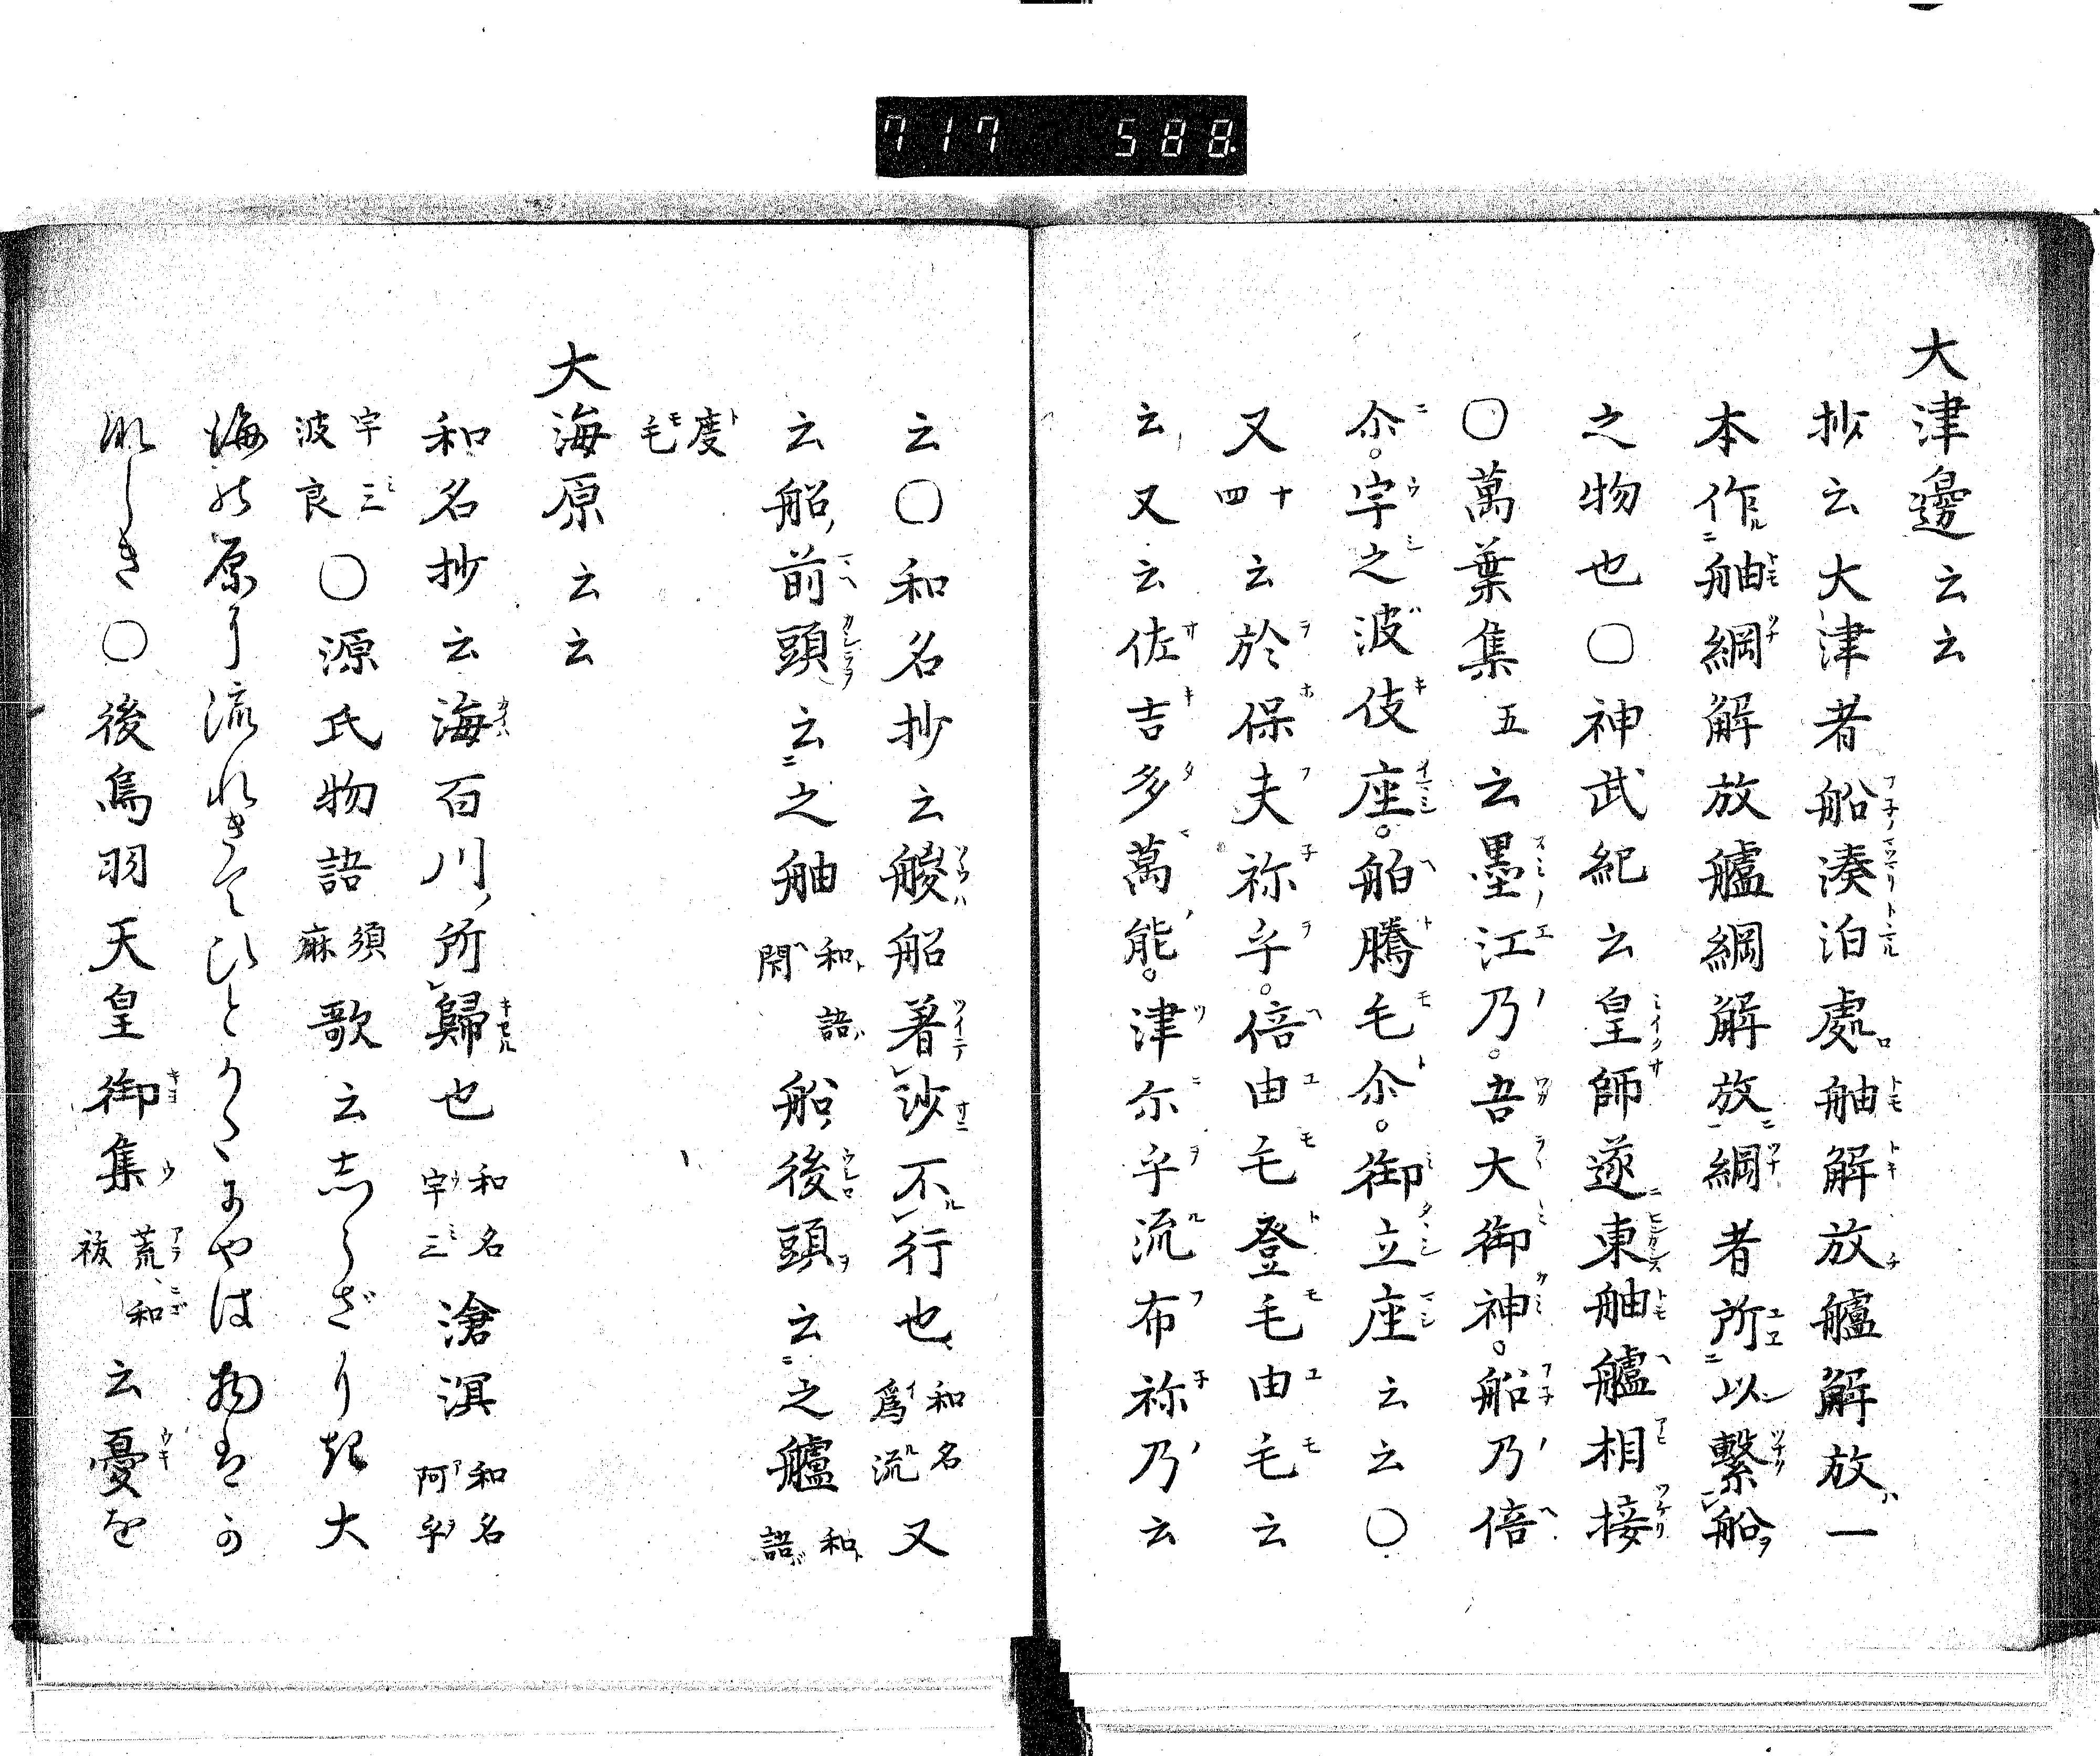 717 588
大津邊云云
抄云大津者船湊泊處舳解放艫解放一
本作舳綱解放艫綱解放綱者所以繋船
之物也〇神武紀云皇師遂東舳艫相接
〇萬葉集五云墨江乃吾大御神船乃倍
尒宇之波伎座舶騰毛尒御立座云云〇
又十四云於保夫祢乎倍由毛登毛由毛云
云又云佐吉多萬能津尓乎流布祢乃云
云〇和名抄云艐船著沙不行也和名為流又
云船前頭云之舳和語閇船後頭云之艫和語
度毛
大海原云云
和名抄云海百川所歸也和名宇三滄溟和名阿乎
宇三波良〇源氏物語須麻歌云志らざりし大
海の原に流れきてひとかたにやは物はか
なしき〇後鳥羽天皇御集荒和祓云憂を